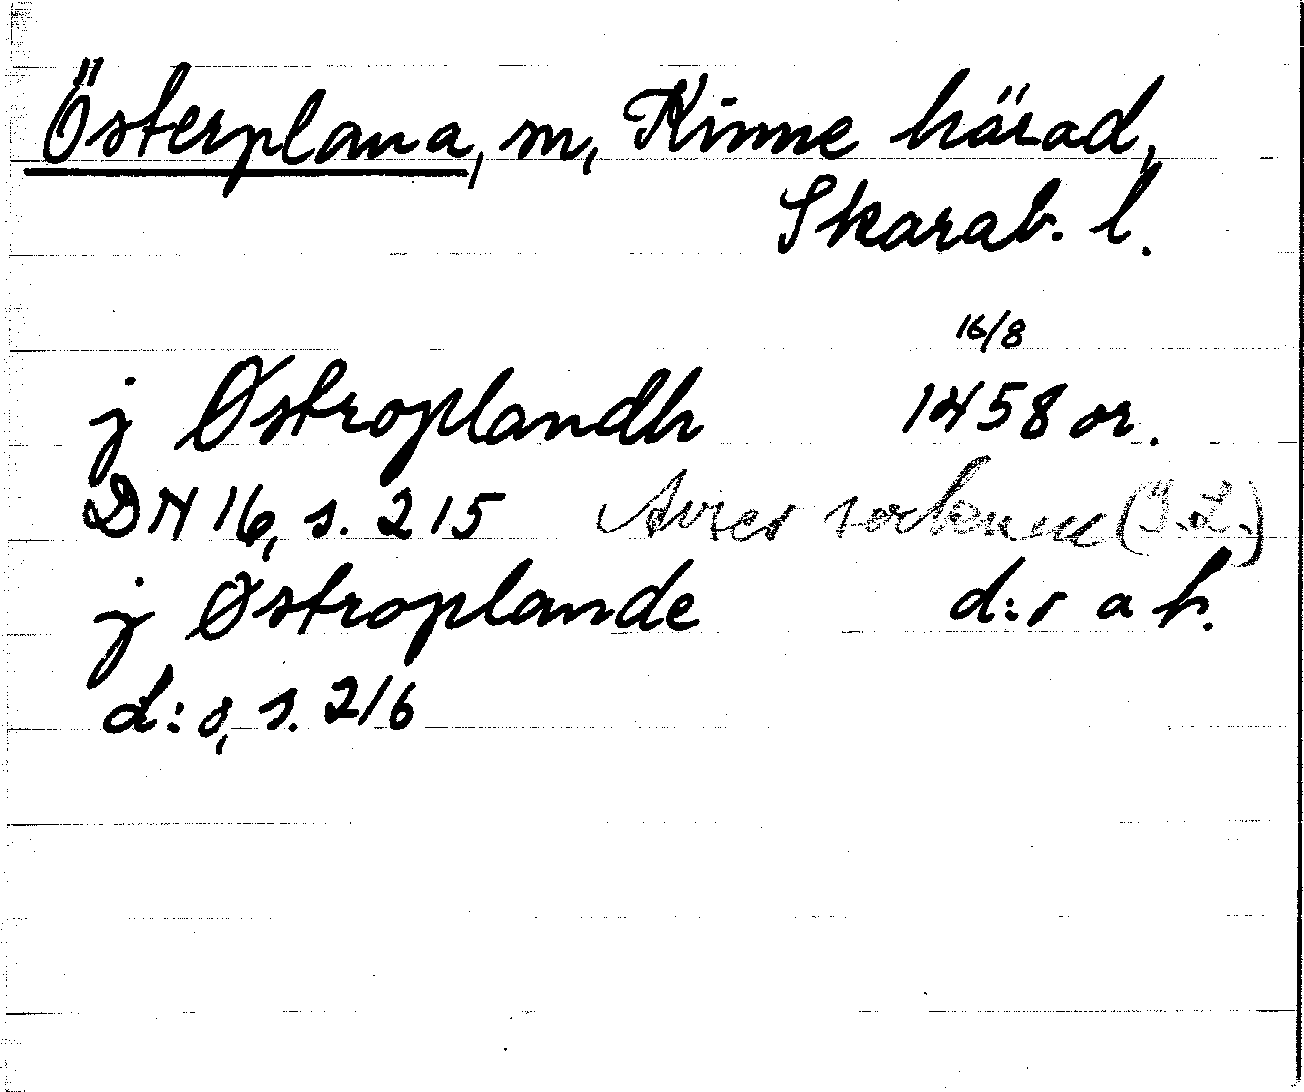 Österplana, sn, Kinne härad,
Skarab. l.
16/8
j Østroplandh 1458 or.
DN 16, s. 215 Avser socknen (I.L.)
j Østroplande d:o a h.
d:o, s. 216